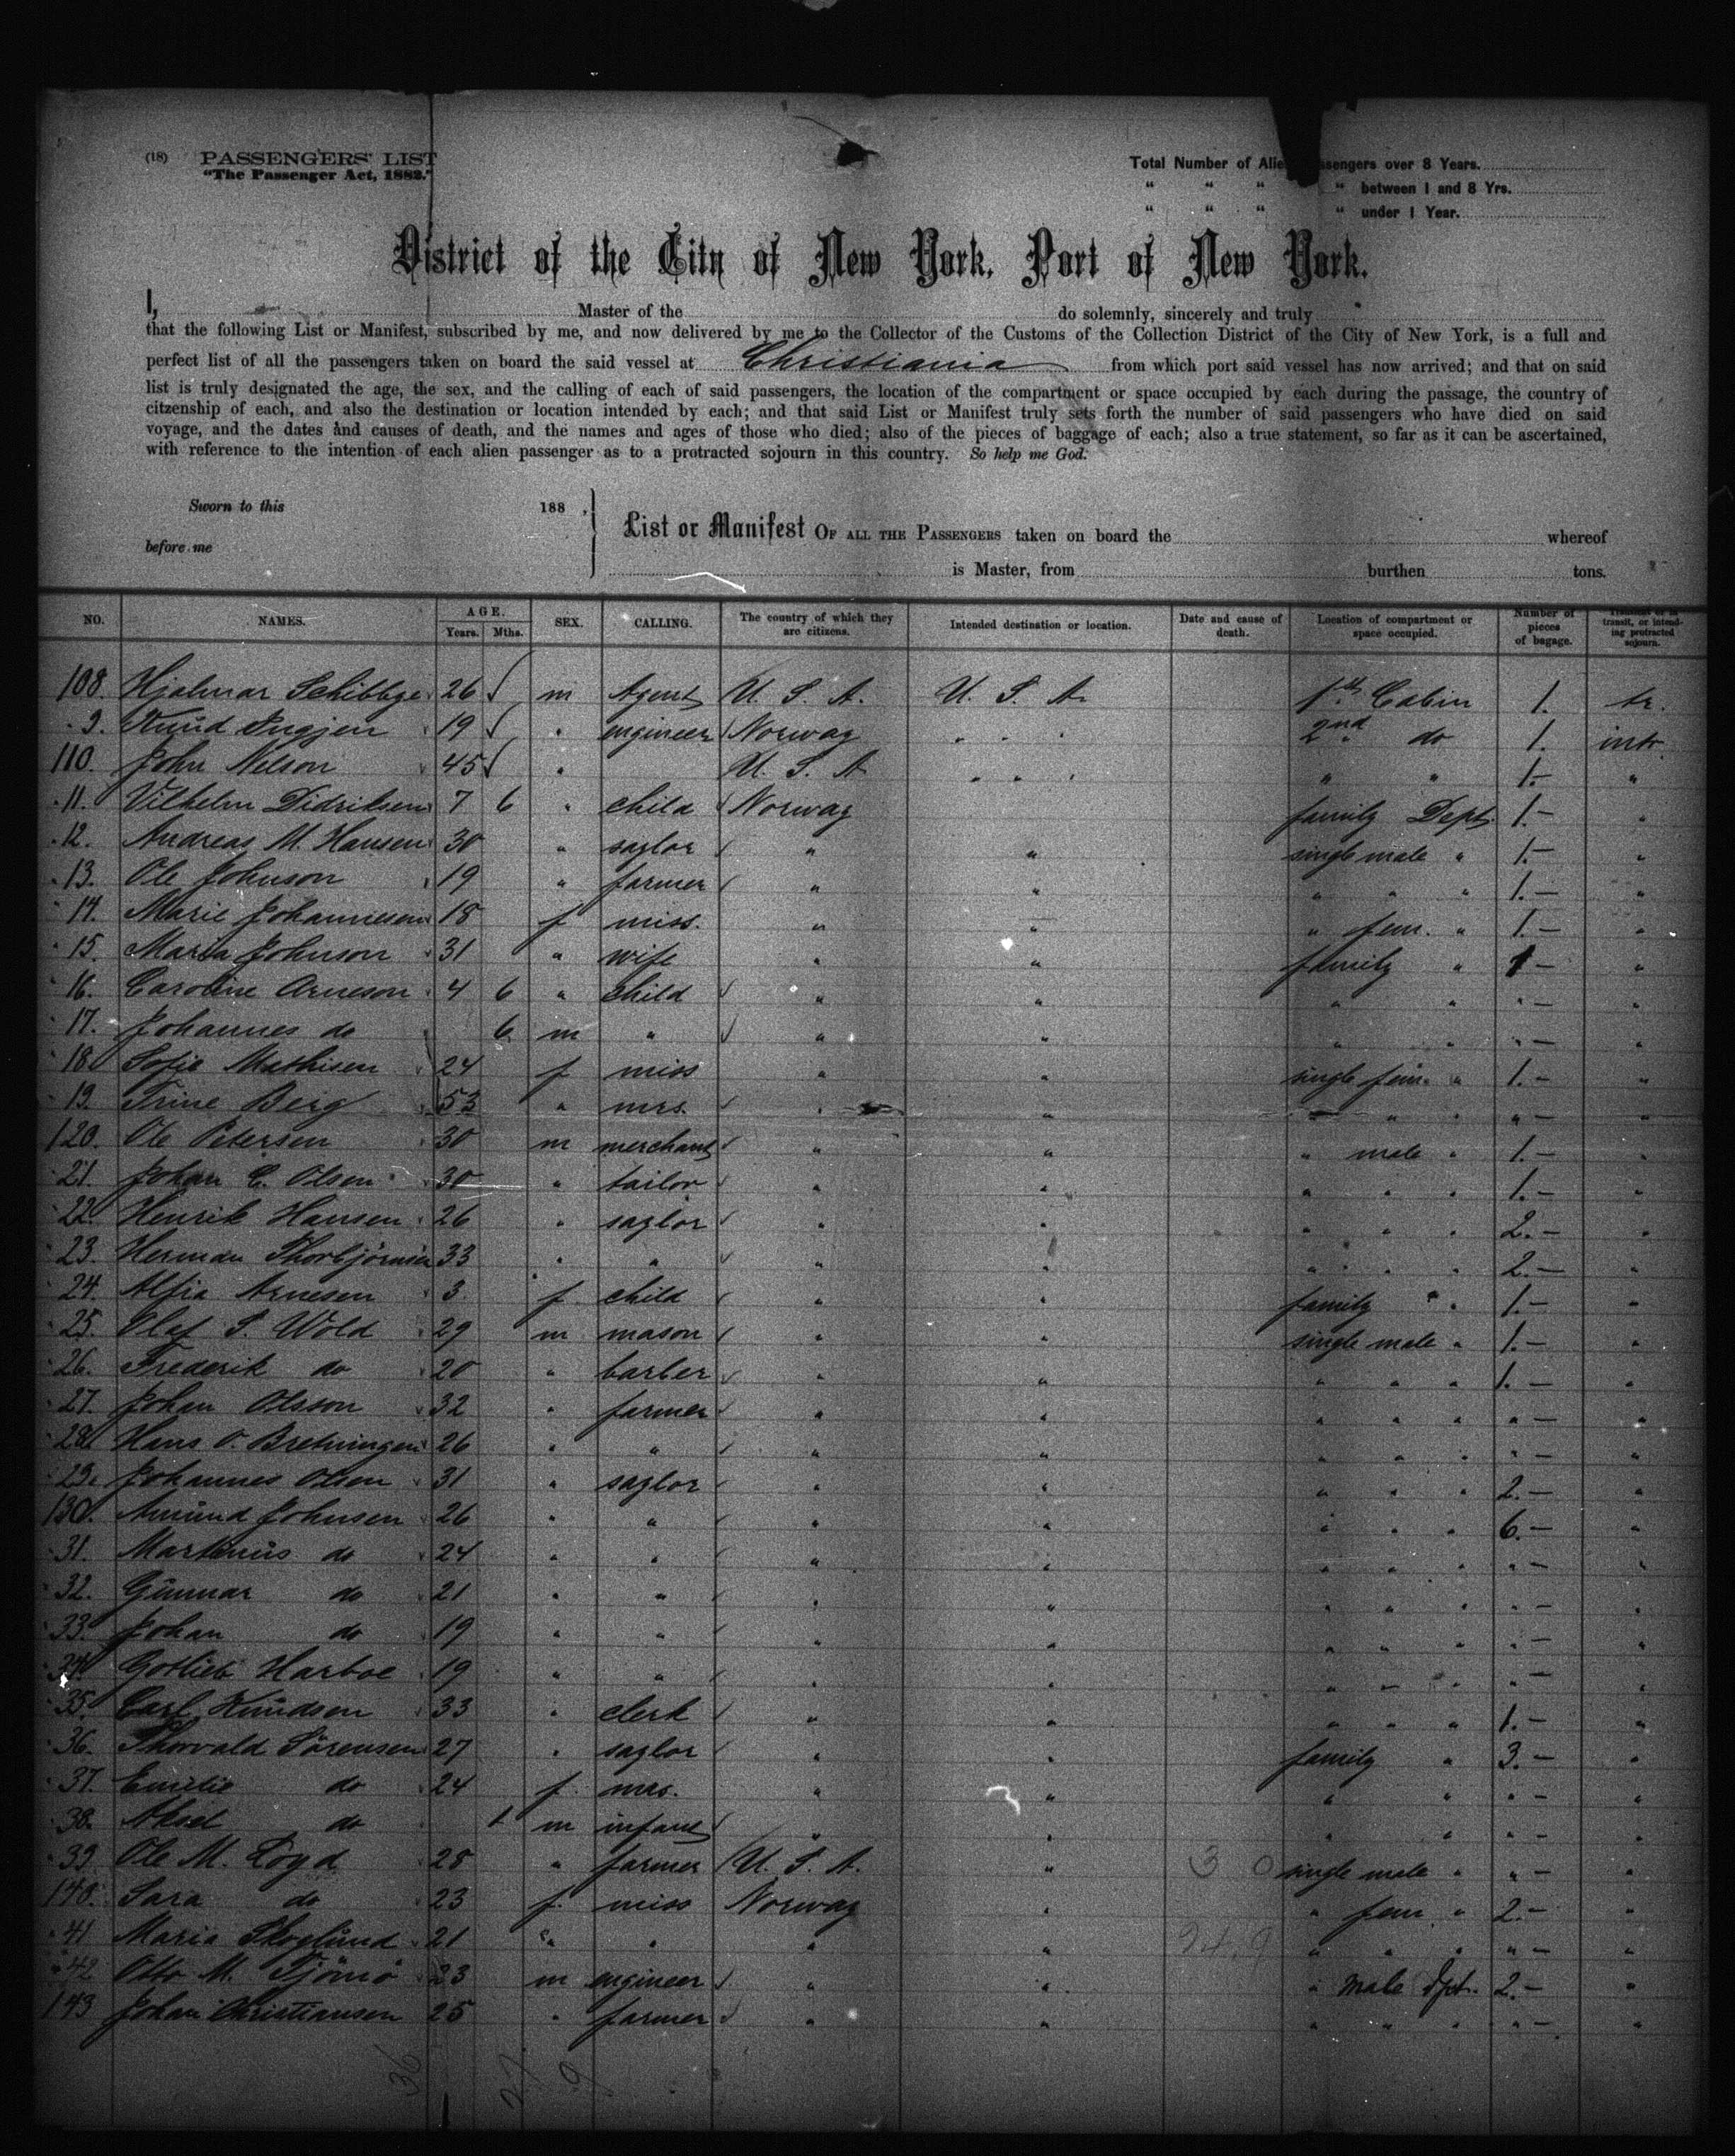 (18) PASSENGERS' LIST
"The Passenger Act, 1882."
Total Number of Alie ssengers over 8 Years.
" " " " between 1 and 8 Yrs.
" " " " under 1 Year.
District of the City of New York, Port of New York.
I, Master of the do solemnly, sincerely and truly
that the following List or Manifest, subscribed by me, and now delivered by me to the Collector of the Customs of the Collection District of the City of New York, is a full and
perfect list of all the passengers taken on board the said vessel at Christiania from which port said vessel has now arrived; and that on said
list is truly designated the age, the sex, and the calling of each of said passengers, the location of the compartment or space occupied by each during the passage, the country of
citzenship of each, and also the destination or location intended by each; and that said List or Manifest truly sets forth the number of said passengers who have died on said
voyage, and the dates and causes of death, and the names and ages of those who died; also of the pieces of baggage of each; also a true statement, so far as it can be ascertained,
with reference to the intention of each alien passenger as to a protracted sojourn in this country. So help me God.
Sworn to this 188 ,
before me
List or Manifest OF ALL THE PASSENGERS taken on board the whereof
is Master, from burthen tons.
NO. NAMES. AGE. Years. Mths. SEX. CALLING. The country of which they are citizens. Intended destination or location. Date and cause of death. Location of compartment or space occupied. Number of pieces of bagage. transit, or intending protracted sojourn.
108. Hjalmar Schibbye 26 m Agent U. S. A. U. S. A. 1st Cabin 1. tr.
" 9. Knud 19 " engineer Norway " " " 2nd do 1. intr
110. John Nelson 45 " U. S. A " " " " " 1.- "
" 11. Vilhelm Didriksen 7 6 " child Norway family Dept. 1.- "
" 12. Andreas M. Hansen 30 " saylor " " single male " 1.- "
" 13. Ole Johnson 19 " farmer " " " " " 1.- "
" 14. Marie Johannesen 18 f miss. " " " fem. " 1.- "
" 15. Maria Johnson 31 " wife " " family " 1- "
" 16. Caroline Arneson 4 6 " child " " " " " - "
" 17. Johannes do 6 m " " " " " " - "
" 18. Sofie Mathisen 24 f miss " " single fem. " 1.- "
" 19. Trine Berg 53 " mrs. " " " " " " - "
120. Ole Petersen 30 m merchant " " " male " 1.- "
" 21. Johan C. Olsen 30 " tailor " " " " " 1.- "
" 22. Henrik Hansen 26 " saylor " " " " " 2.- "
" 23. Herman Thorbjörnsen 33 " " " " " " " 2.- "
" 24. Alfia Arnesen 3. f. child " " family " 1.- "
" 25. Olaf S. Wold 29 m mason " " single male " 1.- "
" 26. Frederik do 20 " barber " " " " " 1.- "
" 27. Johan Olsson 32 " farmer " " " " " " - "
" 28. Hans O. 26 " " " " " " " " - "
" 29. Johannes Olsen 31 " saylor " " " " " 2.- "
130. Amund Johnsen 26 " " " " " " " 6.- "
" 31. Martinus do 24 " " " " " " " " - "
" 32. Gunnar do 21 " " " " " " " " - "
" 33. Johan do 19 " " " " " " " " - "
" 34. Gotlieb Harboe 19 " " " " " " " " - "
" 35. Carl Knudsen 33 " clerk " " " " " 1.- "
" 36. Thorvald Sörensen 27 " saylor " " family " 3.- "
" 37. Emilie do 24 f. mrs. " " " " " - "
" 38. Aksel do 1 m infant " " " " " - "
" 39 Ole M. Loyd 28 " farmer U. S. A. " 3 0 single male " " - "
140. Sara do 23 f. miss Norway " " fem. " 2.- "
" 41 Maria Skoglund 21 " " " " " " " " - "
" 42 Otto M. Tjömö 23 m engineer " " " male dpt. 2.- "
143 Johan Christiansen 25 " farmer " " " " " " - "
36 27 9